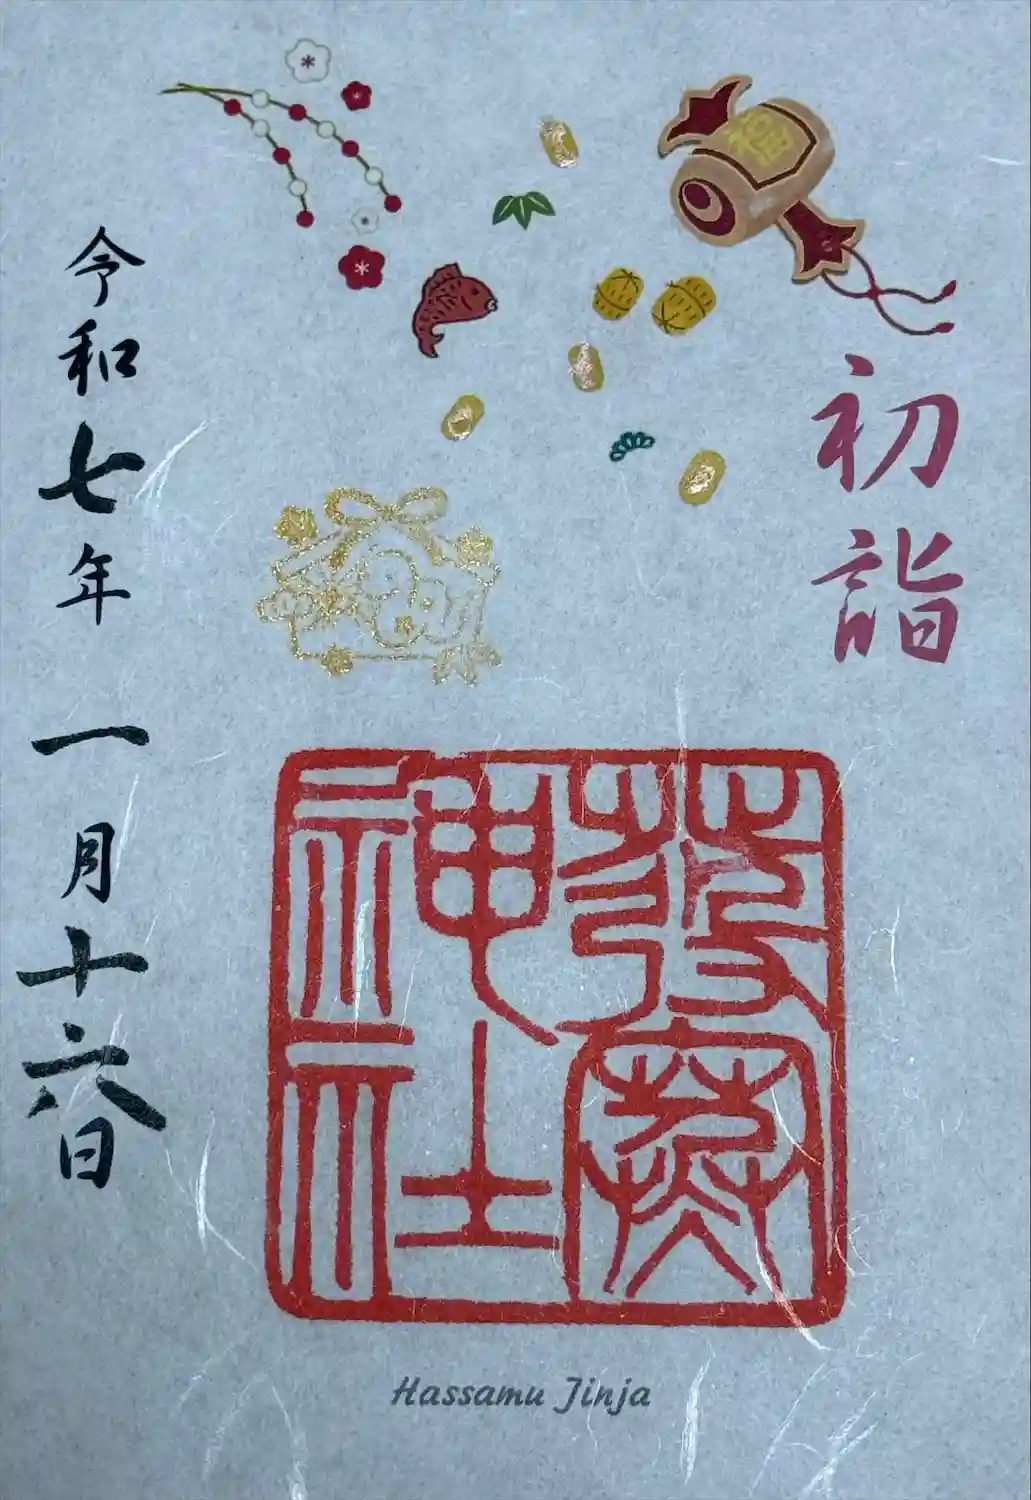 初詣
發寒神社
令和七年 一月十六日
Hassamu Jinja